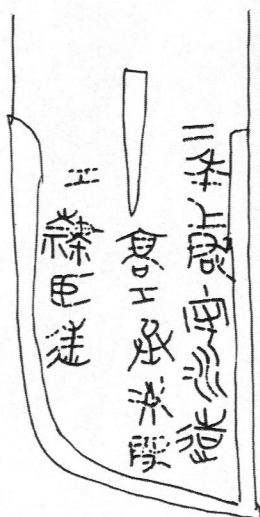 二年上郡守冰造
高工丞沐
工隸臣徒